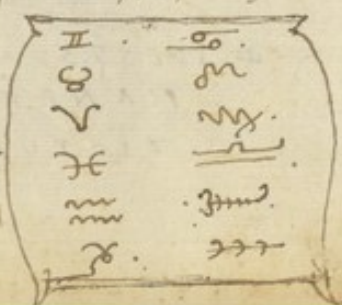 ♊ . ♋
♉ ♌
♈ ♍.
♓ ♎.
♒ . ♏.
♑ . ♐